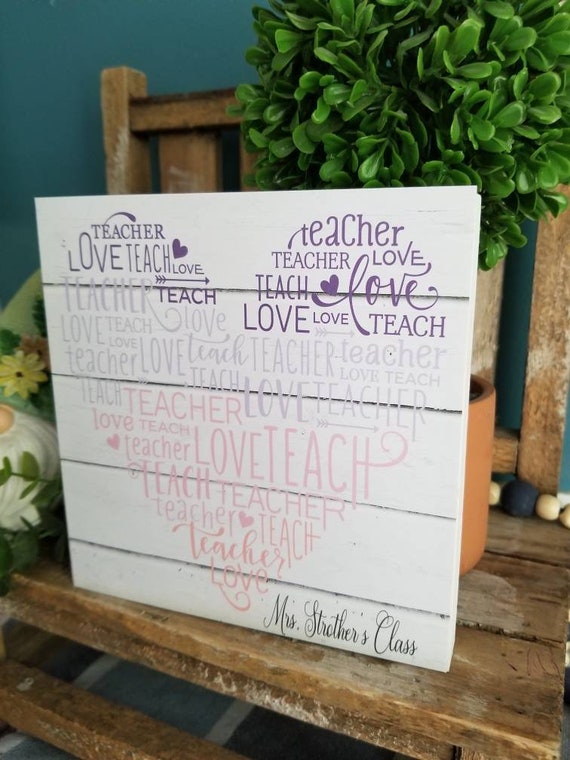 TEACHER
LOVE TEACH LOVE
TEACH
teacher
TEACHER LOVE
TEACH love
LOVE LOVE TEACH
TEACHER love
LOVE TEACH LOVE teacher LOVE teach TEACHER teacher
LOVE TEACH
TEACH TEACHER TEACH LOVE TEACHER
love TEACH
teacher LOVE TEACH
TEACH TEACHER
teacher TEACH
teacher
LOVE
Mrs. Strother's Class